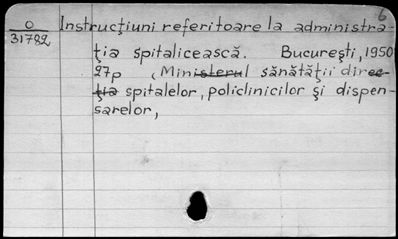 6
O Instrucţiuni referitoare la administra-
31782
ţia spitalicească. București, 1950
27p (Ministerul sănătăţii direc-
ţia spitalelor, policlinicilor şi dispen-
sarelor,